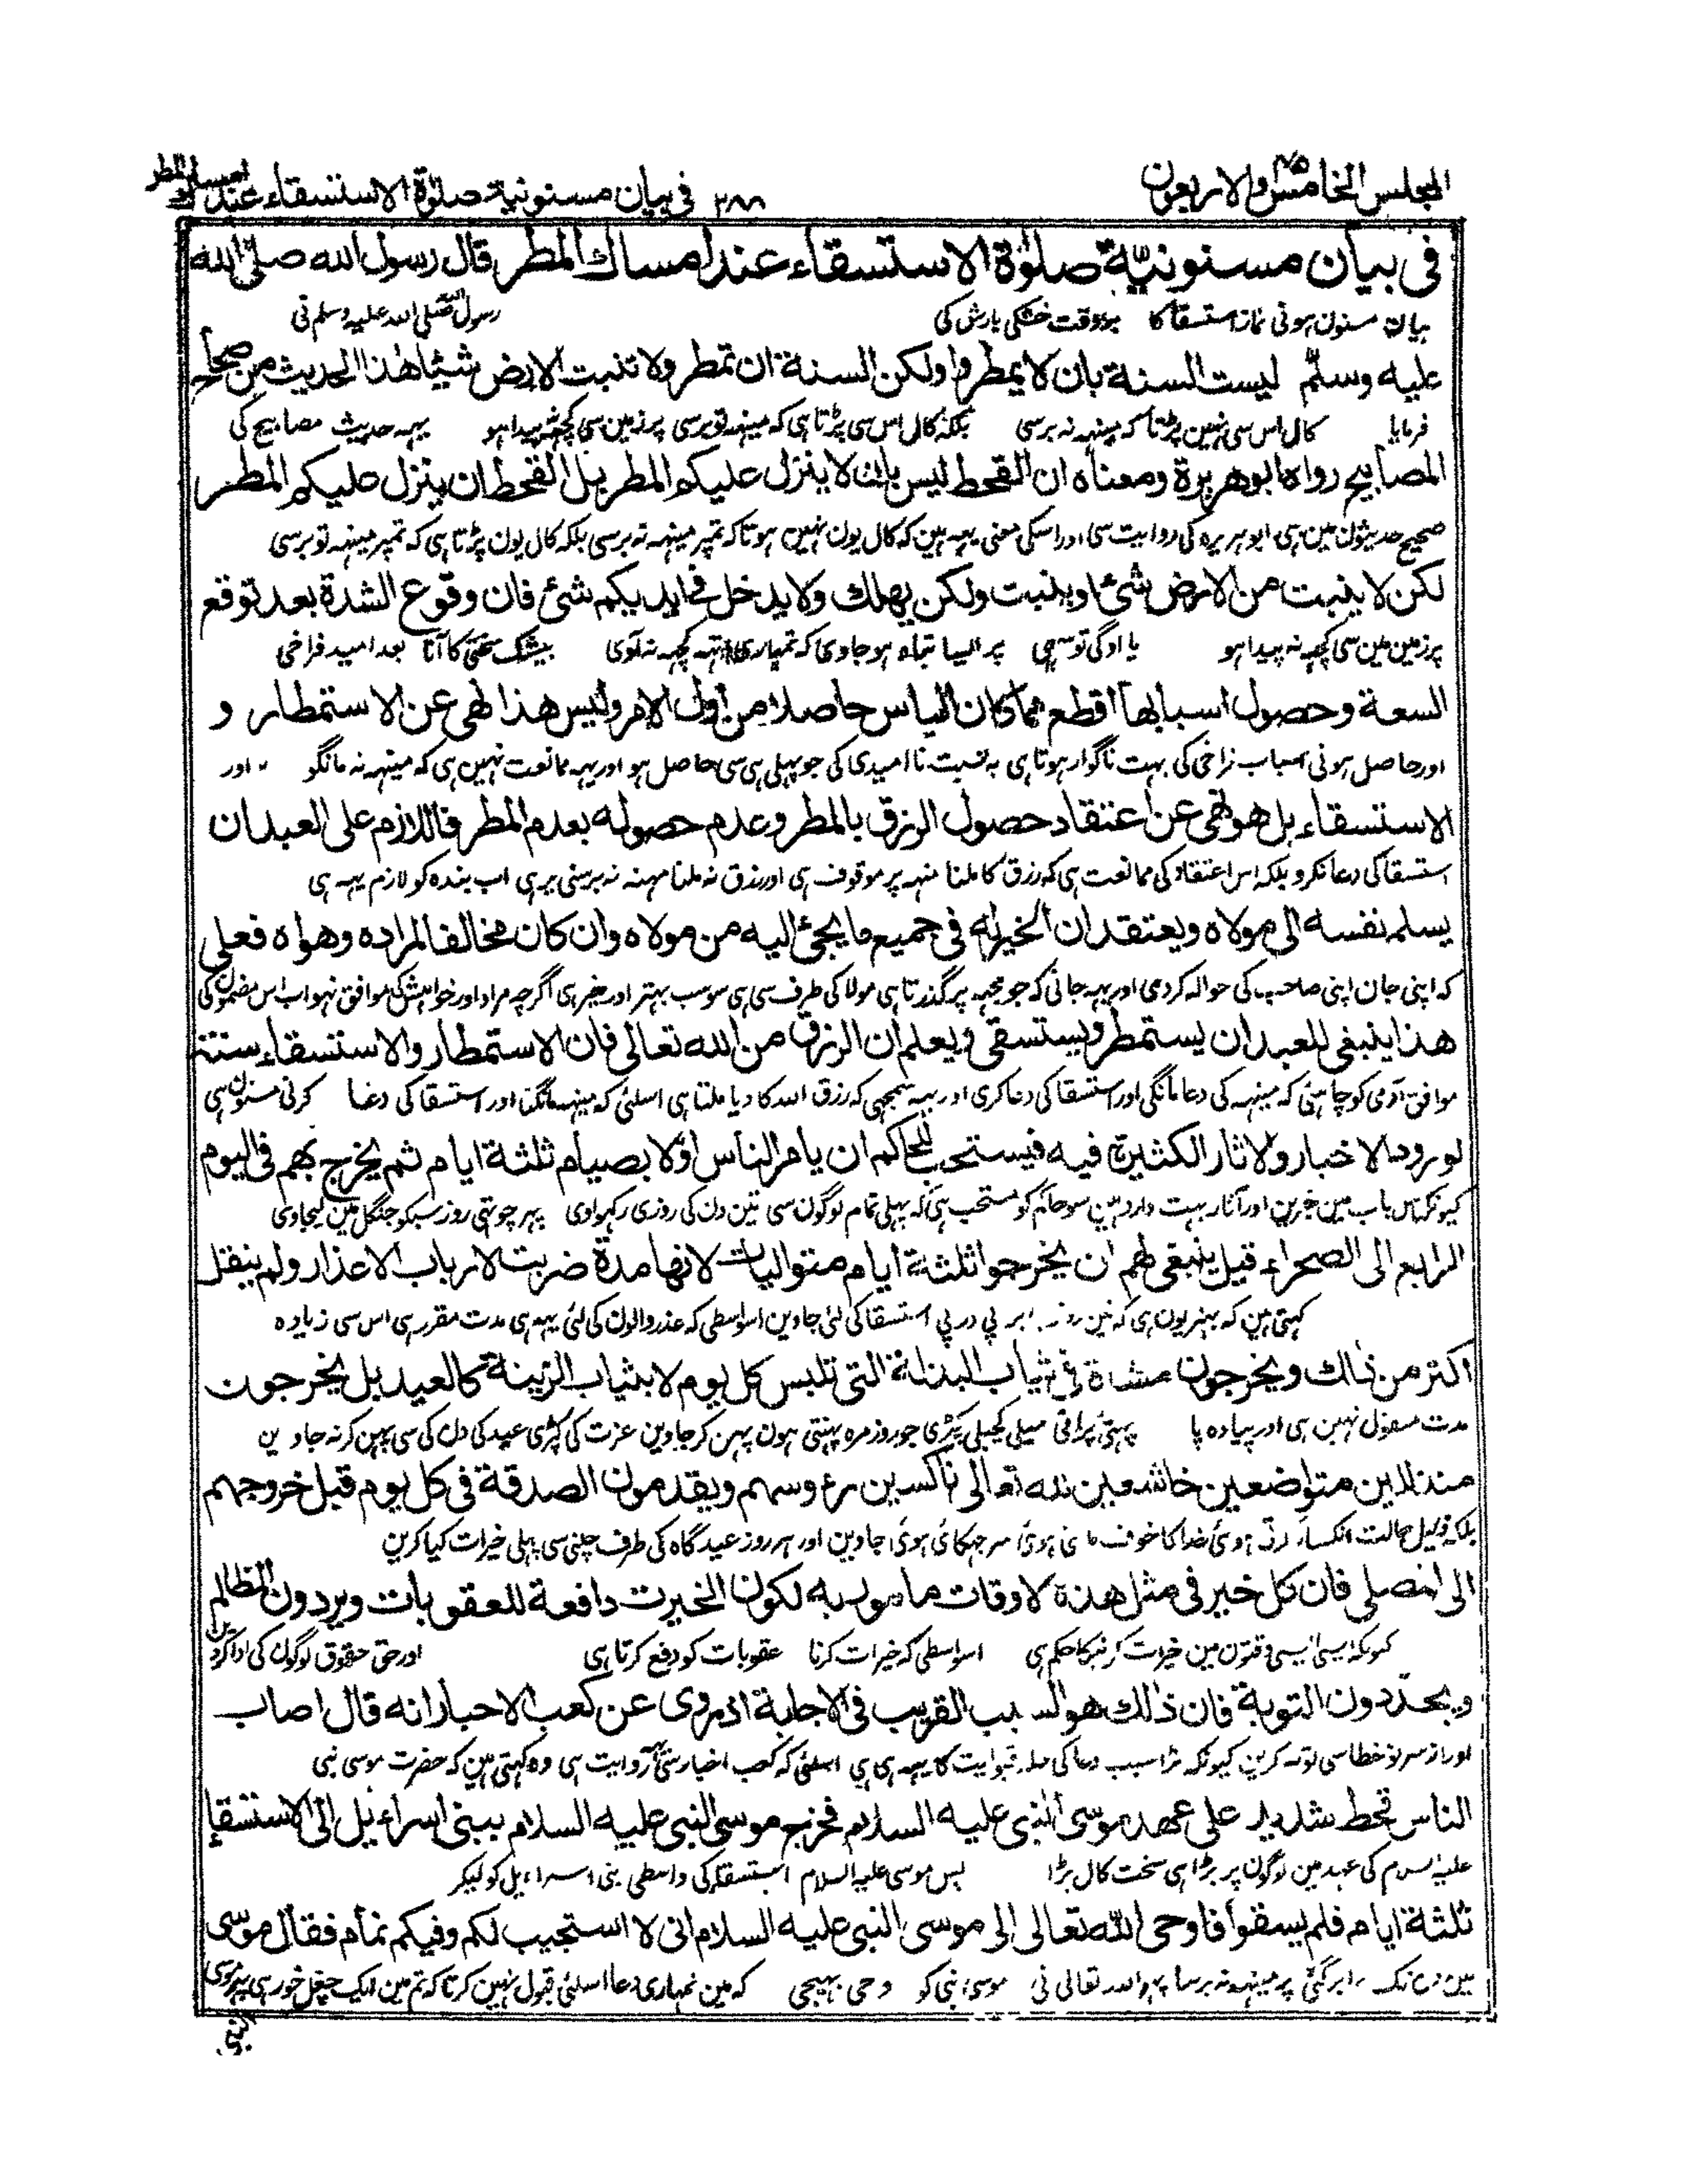 المجلس الخامس والاربعون ٤٥
٣٨٨
فی بیان مسنونیة صلوة الاستسقاء عند امساك المطر
فی بیان مسنونیّة صلوٰة الاستسقاء عند امساك المطر قال رسول الله صلّی الله
بیان مسنون ہونی نماز استسقا کا بروقت خشکی بارش کی رسول الله صلی الله علیہ وسلم نی
علیه وسلّم لیست السنة بان لا یمطروا ولکن السنة ان تمطر ولا تنبت الارض شیئا هٰذا الحدیث من صحاح
فرمایا کال اس سی نہین پڑتا کہ مینہہ نہ برسی بلکہ کال اس سی پڑتا ہی کہ مینہہ تو برسی پر زمین سی کچہہ نہ پیدا ہو یہہ حدیث مصابیح کی
المصابیح رواه ابو هریرة ومعناه ان القحط لیس بان لا ینزل علیکم المطر بل القحط ان ینزل علیکم المطر
صحیح حدیثون مین ہی ابو ہریرہ کی روایت سی اور اسکی معنی یہہ ہین کہ کال یون نہین ہوتا کہ تمپر مینہہ نہ برسی بلکہ کال یون پڑتا ہی کہ تمپر مینہہ تو برسی
لکن لا ینبت من الارض شئ او ینبت ولکن یهلك ولا یدخل فی ایدیکم شئ فان وقوع الشدة بعد توقع
پر زمین مین سی کچہہ نہ پیدا ہو یا اوگی تو سہی پر ایسا تباہ ہو جاوی کہ تمہاری ہاتہہ کچہہ نہ آوی بیشک سختی کا آنا بعد امید فراخی
السعة وحصول اسبابها اقطع مما کان الیاس حاصلا من اول الامر ولیس هذا نهی عن الاستمطار و
اور حاصل ہونی اسباب فراخی کی بہت ناگوار ہوتا ہی بہ نسبت نا امیدی کی جو پہلی ہی سی حاصل ہو اور یہہ ممانعت نہین ہی کہ مینہہ نہ مانگو اور
الاستسقاء بل هو نهی عن اعتقاد حصول الرزق بالمطر وعدم حصوله بعدم المطر فاللازم علی العبد ان
استسقا کی دعا نکرو بلکہ اس اعتقاد کی ممانعت ہی کہ رزق کا ملنا منہہ پر موقوف ہی اور رزق نہ ملنا مہنہ نہ برسنی پر ہی اب بندہ کو لازم یہہ ہی
یسلم نفسه الی مولاه ویعتقد ان الخیر له فی جمیع ما یجئ الیه من مولاه وان کان مخالفا لمراده وهواه فعلی
کہ اپنی جان اپنی صاحب کی حوالہ کر دی اور یہہ جانی کہ جو مجہہ پر گذرتا ہی مولا کی طرف سی ہی سو سب بہتر اور خیر ہی اگرچہ مراد اور خواہش کی موافق نہو اب اس مضمون کی
هذا ینبغی للعبد ان یستمطر ویستسقی ویعلم ان الرزق من الله تعالی فان الاستمطار والاستسقاء سنة
موافق آدمی کو چاہئی کہ مینہہ کی دعا مانگی اور استسقا کی دعا کری اور یہہ سمجہی کہ رزق الله کا دیا ملتا ہی اسلئی کہ مینہہ مانگنا اور استسقا کی دعا کرنی مسنون ہی
لورود الاخبار ولاثار الکثیرة فیه فیستحب للحاکم ان یامر الناس اوّلا بصیام ثلثة ایام ثم یخرج بهم فی الیوم
کیونکہ اس باب مین خبرین اور آثار بہت وارد ہین سو حاکم کو مستحب ہی کہ پہلی تمام لوگون سی تین دن کی روزی رکہوا وی پہر چوتہی روز سبکو جنگل مین لیجاوی
الرابع الی الصحراء قیل ینبغی لهم ان یخرجوا ثلثة ایام متوالیات لانها مدة ضربت لارباب الاعذار ولم ینقل
کہتی ہین کہ بہتر یون ہی کہ تین روز برابر پی در پی استسقا کی لئی جاوین اسواسطی کہ عذر والون کی لئی یہہ ہی مدت مقرر ہی اس سی زیادہ
اکثر من ذلك ویخرجون مشاة فی ثیاب البذلة التی تلبس کل یوم لا بثیاب الزینة کالعید بل یخرجون
مدت منقول نہین ہی اور پیادہ پا پہٹی پرانی میلی کچیلی کپڑی جو روز مرہ پہنتی ہون پہن کر جاوین عزت کی کپڑی عید کی دن کی سی پہن کر نہ جاوین
متذللین متواضعین خاشعین لله تعالی ناکسین رءوسهم ویقدمون الصدقة فی کل یوم قبل خروجهم
بلکہ ذلیل حالت انکسار کرتی ہوئی خدا کا خوف مانی ہوئی سر جہکائی ہوئی جاوین اور ہر روز عیدگاہ کی طرف چلنی سی پہلی خیرات کیا کرین
الی المصلی فان کل خیر فی مثل هذه لاوقات مامور به لکون الخیرت دافعة للعقوبات ویردون المظالم
کیونکہ ایسی ایسی وقتون مین خیرات کرنیکا حکم ہی اسواسطی کہ خیرات کرنا عقوبات کو دفع کرتا ہی اور حق حقوق لوگون کی ادا کردین
ویجدّدون التوبة فان ذالك هو السبب القریب فی الاجابة اذ روی عن کعب الاحبار انه قال اصاب
اور از سر نو خطا سی توبہ کرین کیونکہ بڑا سبب دعا کی جلد قبولیت کا یہہ ہی ہی اسلئی کہ کعب احبار سی روایت ہی وہ کہتی ہین کہ حضرت موسی نبی
الناس قحط شدید علی عهد موسی النبی علیه السلام فخرج موسی النبی علیه السلام ببنی اسراءیل الی الاستسقا
علیہ السلام کی عہد مین لوگون پر بڑا ہی سخت کال پڑا پس موسی علیہ السلام استسقا کی واسطی بنی اسراءیل کو لیکر
ثلثة ایام فلم یسقوا فاوحی الله تعالی الی موسی النبی علیه السلام انی لا استجیب لکم وفیکم نمام فقال موسی
تین دن تک برابر گئی پر مینہہ نہ برسا پہر الله تعالی نی موسی نبی کو وحی بہیجی کہ مین تمہاری دعا اسلئی قبول نہین کرتا کہ تم مین ایک چغل خور ہی پہر موسی